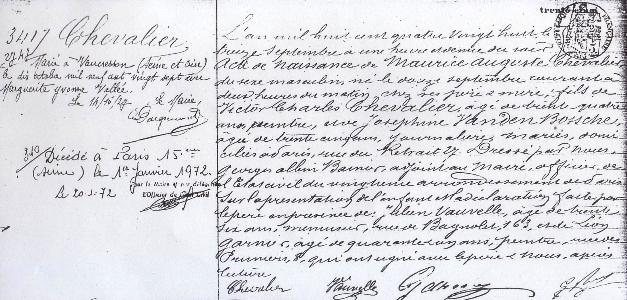 3417 Chevalier
Marié à Vaucresson (Seine et Oise)
le dix octobre mil neuf cent vingt sept avec
Marguerite Yvonne Vallée.
Le Maire,
Décédé à Paris 15
(Seine) le 1er Janvier 1972.
Le 20-1-72
L'an mil huit cent quatre vingt huit le
treize septembre à une heure du soir
Acte de Naissance de Maurice Auguste Chevalier
du sexe masculin, né le douze septembre courant à
deux heures du matin, chez ses père & mère, fils de
Victor Charles Chevalier, âgé de trente quatre
ans, peintre, et de Joséphine Vanden Bossche,
âgée de trente cinq ans, journalière, mariés, domi-
ciliés à Paris, rue du Retrait 27. Dressé par Nous,
adjoint au Maire, officier de
l'Etat civil du vingtième arrondissement de Paris
Sur la présentation de l'enfant et déclaration faite par
le père en présence de Vauvelle, âgé de trente
six ans, menuisier, rue de Bagnolet, 163, et de Léon
Garnier, âgé de quarante ans, peintre, rue des
Pruniers, qui ont signé avec le père & Nous, après
lecture.
Chevalier Vauvelle